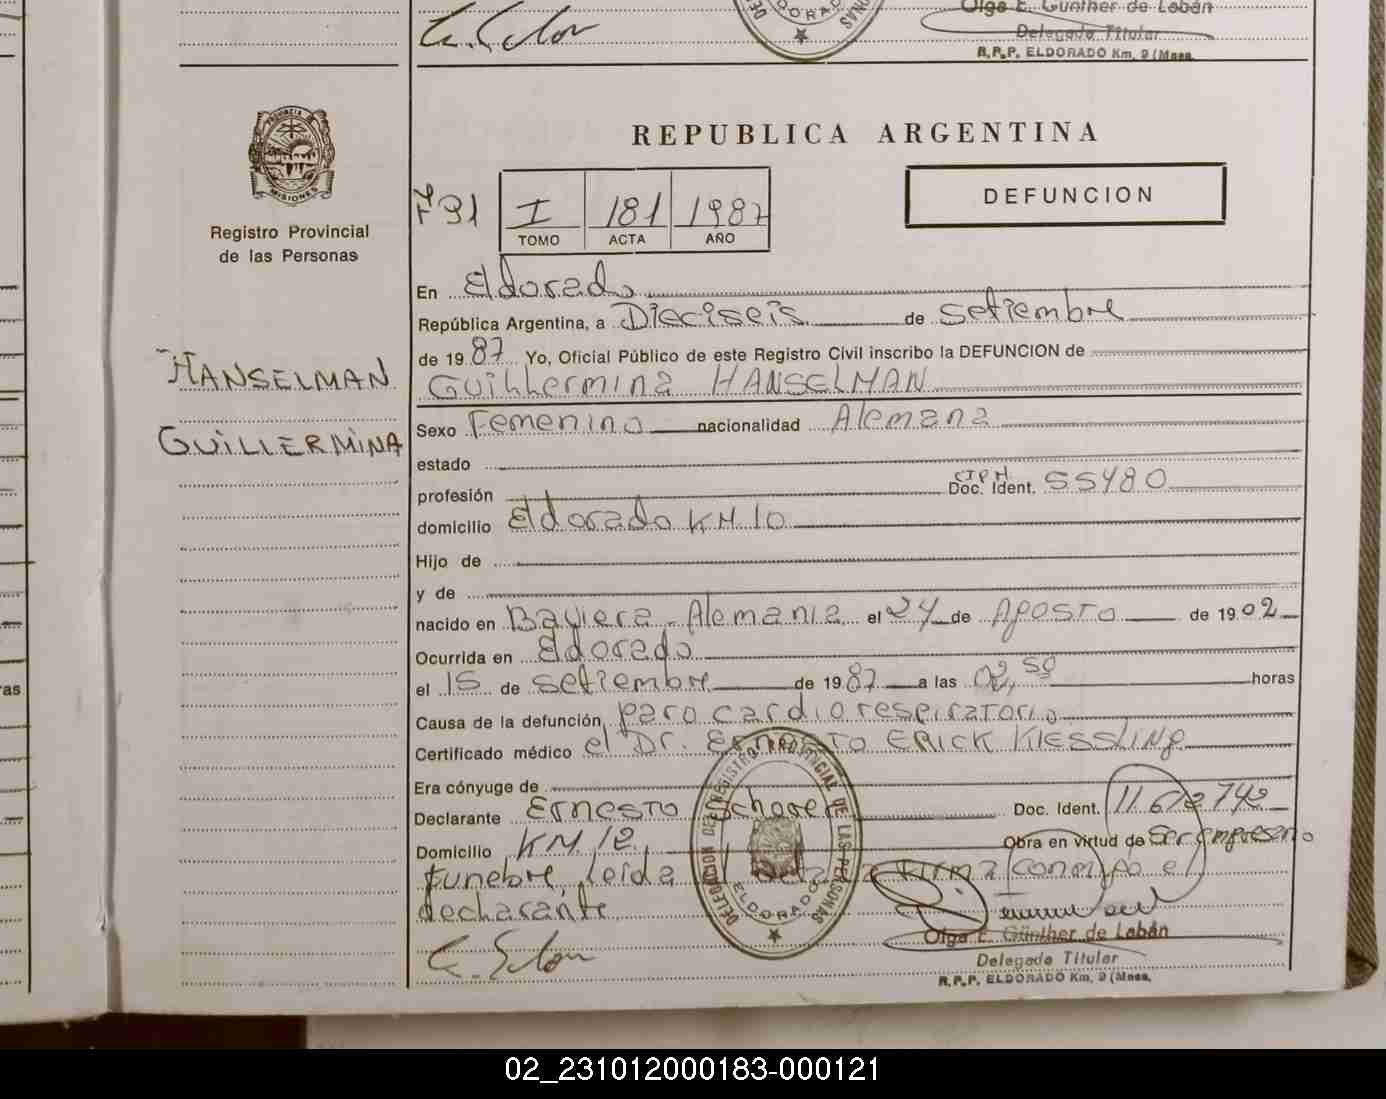 Olga E. Günther de Labán
Delegado Titular
R.P.P. ELDORADO Km. 9 (Mnes.
ELDORADO
PROVINCIA DE
MISIONES
Registro Provincial
de las Personas
REPUBLICA ARGENTINA
DEFUNCION
Fº 91
I 181 1987
TOMO ACTA AÑO
En Eldorado
República Argentina, a Dieciseis de setiembre
de 1987 Yo, Oficial Público de este Registro Civil inscribo la DEFUNCION de
Guilhermina HANSELMAN
HANSELMAN
GUILLERMINA
Sexo Femenino nacionalidad Alemana
estado
profesión Doc. Ident. 55480
domicilio Eldorado KM 10
Hijo de
y de
nacido en Baviera - Alemania el 24 de Agosto de 1902
Ocurrida en Eldorado
el 15 de setiembre de 1987 a las 02,50 horas
Causa de la defunción paro cardiorespiratorio
Certificado médico el Dr. Ernesto ERICK Kiessling
Era cónyuge de
Declarante Ernesto Schorer Doc. Ident. 11.612.742
Domicilio KM. 12. Obra en virtud de ser empresario
funebre, leida el acta la firma conmigo el
declarante
DELEGACION DEL REGISTRO PROVINCIAL DE LAS PERSONAS
ELDORADO
Olga E. Günther de Labán
Delegado Titular
R.P.P. ELDORADO Km. 9 (Mnes.
ras
02_231012000183-000121